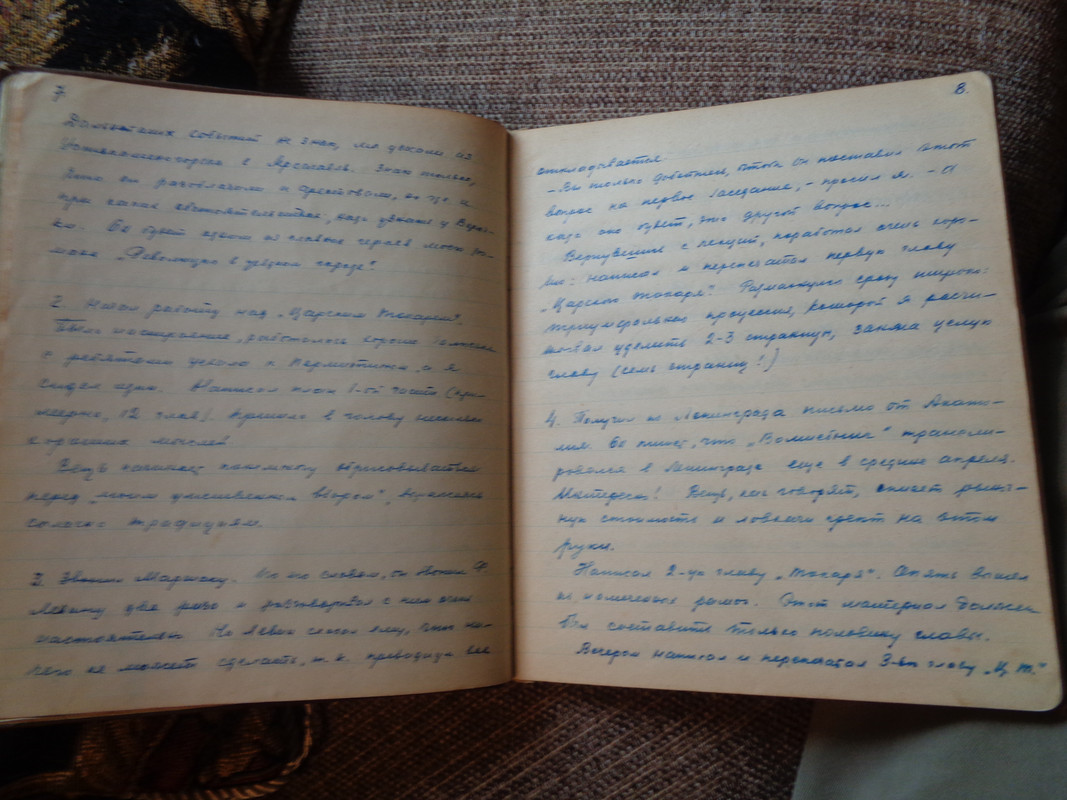 7.
Дальнейших событий я не знаю, мы уехали из
Устькаменогорска в Ярославль. Знаю только,
что он разоблачен и арестован, но где и
при каких обстоятельствах, надо узнать у
Он будет одном из первых героев моего ро-
мана „Революция в уездном городе".
2. Начал работу над „Царским токарем".
Было настроение, работалось хорошо. Галюська
с ребятами уехала к и я
сидел один. Написал план 1-ой части (при-
мерно, 12 глав). Пришло в голову несколько
хороших мыслей.
Вещь начинает понемногу обрисовываться
перед „моим умственным взором", выражаясь
согласно традициям.
3. Звонил Маршаку. По его словам, он звонил
Левину два раза и разговаривал с ним очень
настоятельно. Но Левин сказал ему, что ни-
чего не может сделать, т. к. президиум все
8.
откладывается.
– Вы только добейтесь, чтобы он поставил этот
вопрос на первое заседание, – просил я. – А
когда оно будет, это другой вопрос...
Вернувшись с лекций, поработал очень хоро-
шо: написал и перепечатал первую главу
„Царского токаря". Размахнулся сразу широко:
триумфальная процессия, которой я рассчи-
тывал уделить 2-3 страницы, заняла целую
главу (семь страниц!)
4. Получил из Ленинграда письмо от Анато-
лия. Он пишет, что „Волшебник" трансли-
ровался в Ленинграде еще в средине апреля.
Молодцы! Вещь, как говорят, имеет рыноч-
ную стоимость и ловкачи греют на этом
руки.
Написал 2-ую главу „Токаря". Опять вышел
из намеченных рамок. Этот материал должен
был составить только половину главы.
Вечером написал и перепечатал 3-ью главу „Ц. т."